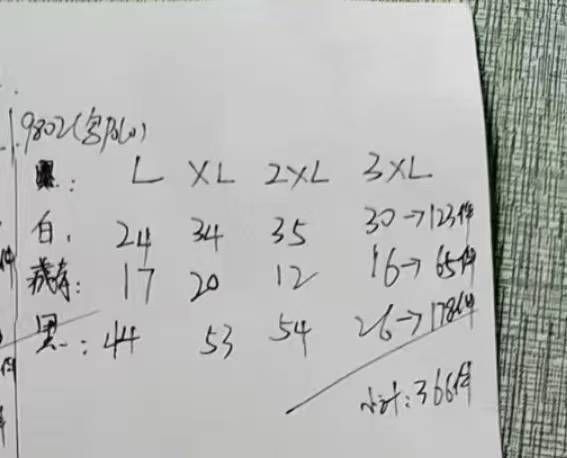 9802(客户Polo)
: L XL 2XL 3XL
白: 24 34 35 30→123件
藏青: 17 20 12 16→65件
黑: 44 53 54 26→178件
小计:366件